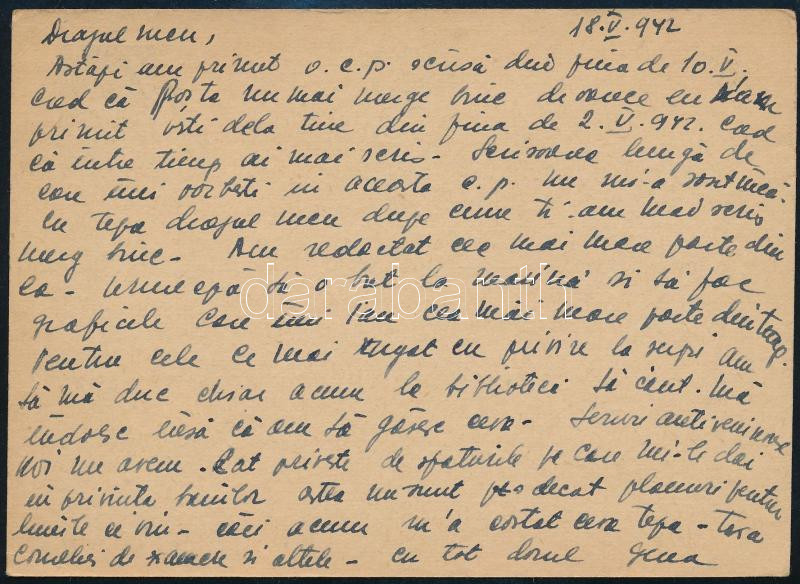 18.V.942
Dragul meu,
Astăzi am primit o c.p. scrisă din ziua de 10.V.
Cred că Poșta nu mai merge bine de oarece eu am
primit vești dela tine din ziua de 2.V.942. Cred
că între timp ai mai scris - Scrisoarea lungă de
care îmi vorbești în aceasta c.p. nu mi-a sosit încă.
Cu teza dragul meu după cum ți-am mai scris
merg bine - Am redactat cea mai mare parte din
ea - urmează să o bat la mașină și să fac
graficele care îmi iau cea mai mare parte din timp.
Pentru cele ce m'ai rugat cu privire la șerpi am
să mă duc chiar acum la bibliotecă să caut. Mă
îndoesc însă că am să găsesc ceva - Seruri antiveninoase
noi nu avem. Cât privește de sfaturile pe care mi-le dai
în privința banilor astea nu sunt decât planuri pentru
lunile ce vin - căci acum m'a costat ceva teza - Taxa
Comeliei de și altele - cu tot dorul
darabanth